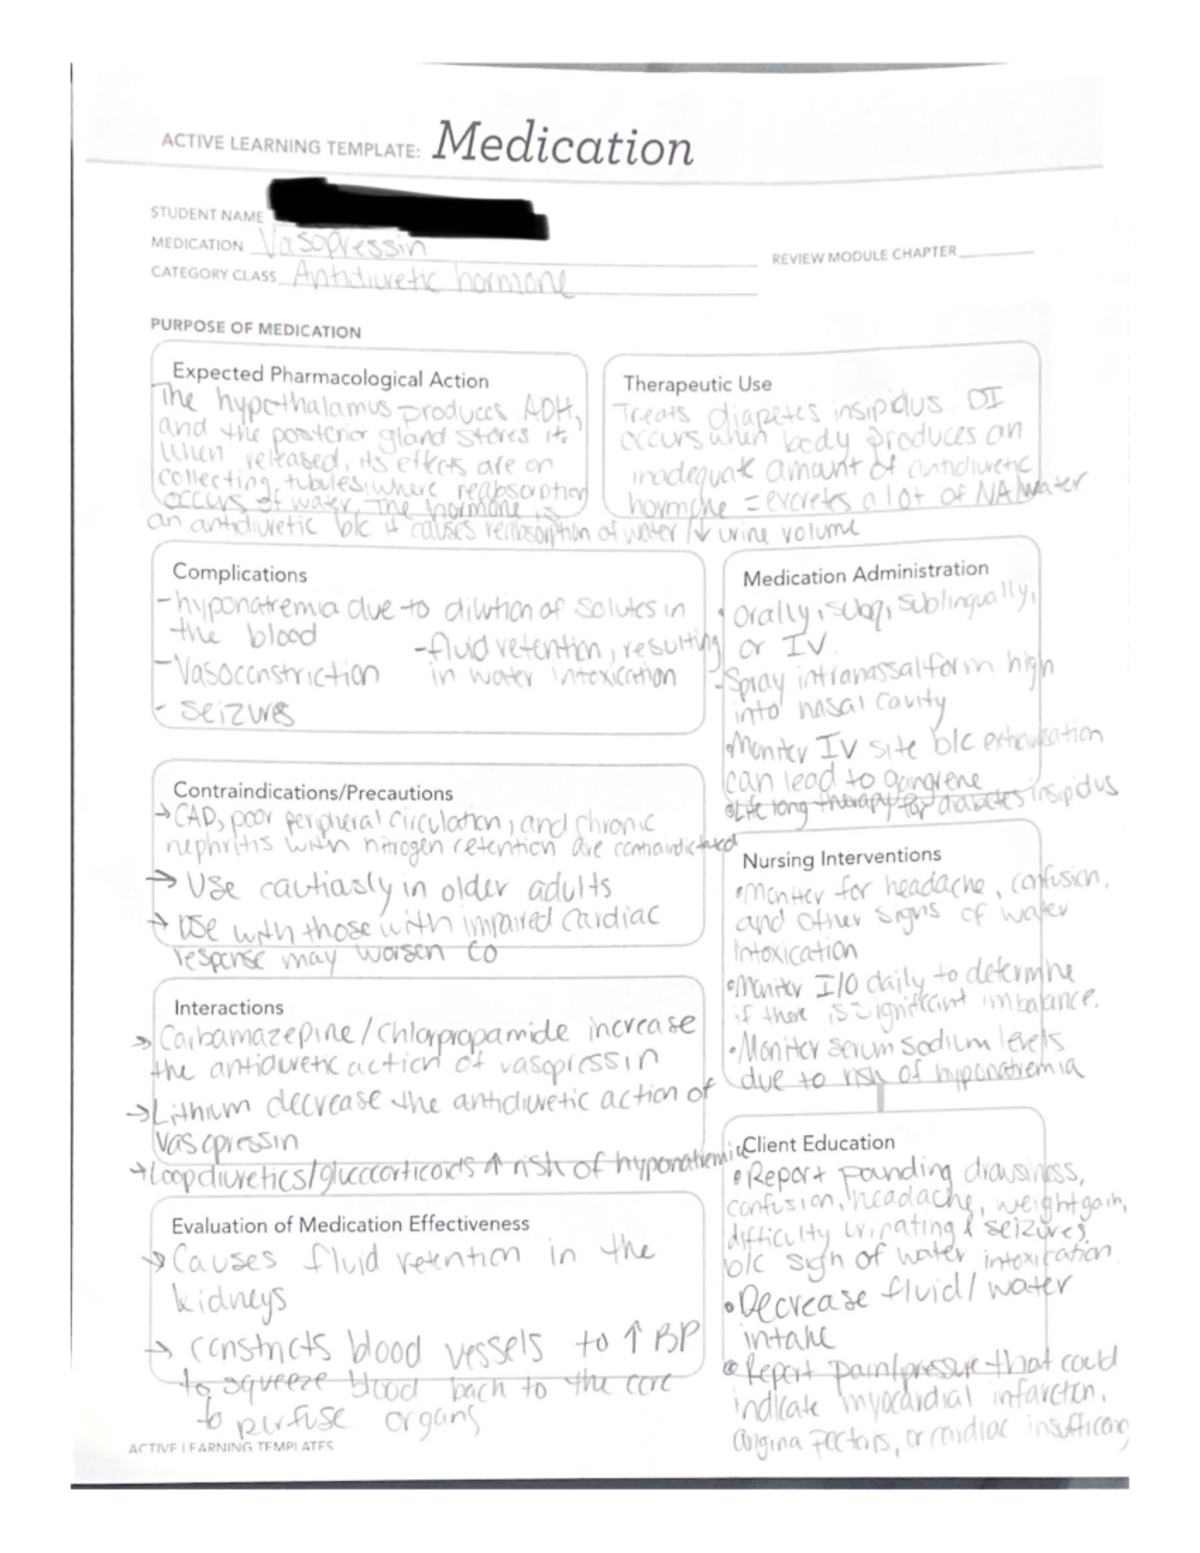 ACTIVE LEARNING TEMPLATE: Medication
STUDENT NAME
MEDICATION Vasopressin
REVIEW MODULE CHAPTER
CATEGORY CLASS Antidiuretic hormone
PURPOSE OF MEDICATION
Expected Pharmacological Action
The hypothalamus produces ADH,
and the posterior gland stores it.
When released, its effects are on
collecting tubules, where reabsorption
occurs of water. The hormone is
an antidiuretic b/c it causes reabsorption of water / ↓ urine volume
Therapeutic Use
Treats diabetes insipidus. DI
occurs when body produces an
inadequate amount of antidiuretic
hormone = excretes a lot of NA/water
Complications
- hyponatremia due to dilution of solutes in
the blood
- fluid retention, resulting
in water intoxication
- Vasoconstriction
- seizures
Medication Administration
• Orally, subq, sublingually,
or IV.
- Spray intranassal form high
into nasal cavity
• Monitor IV site b/c
can lead to gangrene
• Life long therapy for diabetes insipidus
Contraindications/Precautions
→ CAD, poor peripheral circulation, and chronic
nephritis with nitrogen retention are contraindicated
→ Use cautiasly in older adults
→ Use with those with impaired cardiac
response may worsen CO
Nursing Interventions
• Monitor for headache, confusion,
and other signs of water
intoxication
• Monitor I/O daily to determine
if there is significant imbalance.
• Monitor serum sodium levels
due to risk of hyponatremia
Interactions
→ Carbamazepine/chlorpropamide increase
the antidiuretic action of vasopressin
→ Lithium decrease the antidiuretic action of
vasopressin
→ Loop diuretics/glucocorticoids ↑ risk of hyponatremia
Client Education
• Report pounding drowsiness,
confusion, headache, weight gain,
difficulty urinating & seizures
b/c sign of water intoxication.
• Decrease fluid/water
intake
• Report pain/pressure that could
indicate myocardial infarction,
angina pectoris, or cardiac
Evaluation of Medication Effectiveness
→ Causes fluid retention in the
kidneys
→ constricts blood vessels to ↑ BP
to squeeze blood back to the core
to perfuse organs
ACTIVE LEARNING TEMPLATES